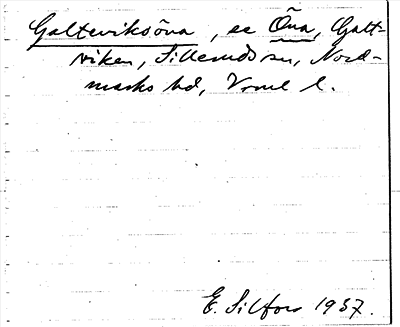 Galteviksõna, se Õna, Galt-
viken, Sillerudssn, Nord-
marks hd, Vrml l.
E. Silfors 1937.